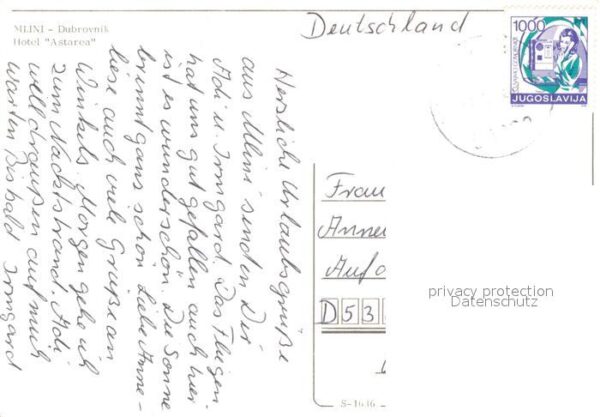 MLINI – Dubrovnik
Hotel "Astarea"
Deutschland
1000
JUGOSLAVIJA
Herzliche Urlaubsgrüße
aus Mlini senden Dir
Adi u. Irmgard. Das Fliegen
hat uns gut gefallen auch hier
ist es wunderschön. Die Sonne
brennt ganz schön. Liebe Anne-
liese auch viele Grüße an
Winkels. Morgen gehe ich
zum Nacktstrand. Adi
will draußen auf mich
warten. Bis bald Irmgard
Frau
Anne
Auf
D 5 3
privacy protection
Datenschutz
S-1636